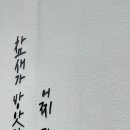 참새가 방앗
어찌